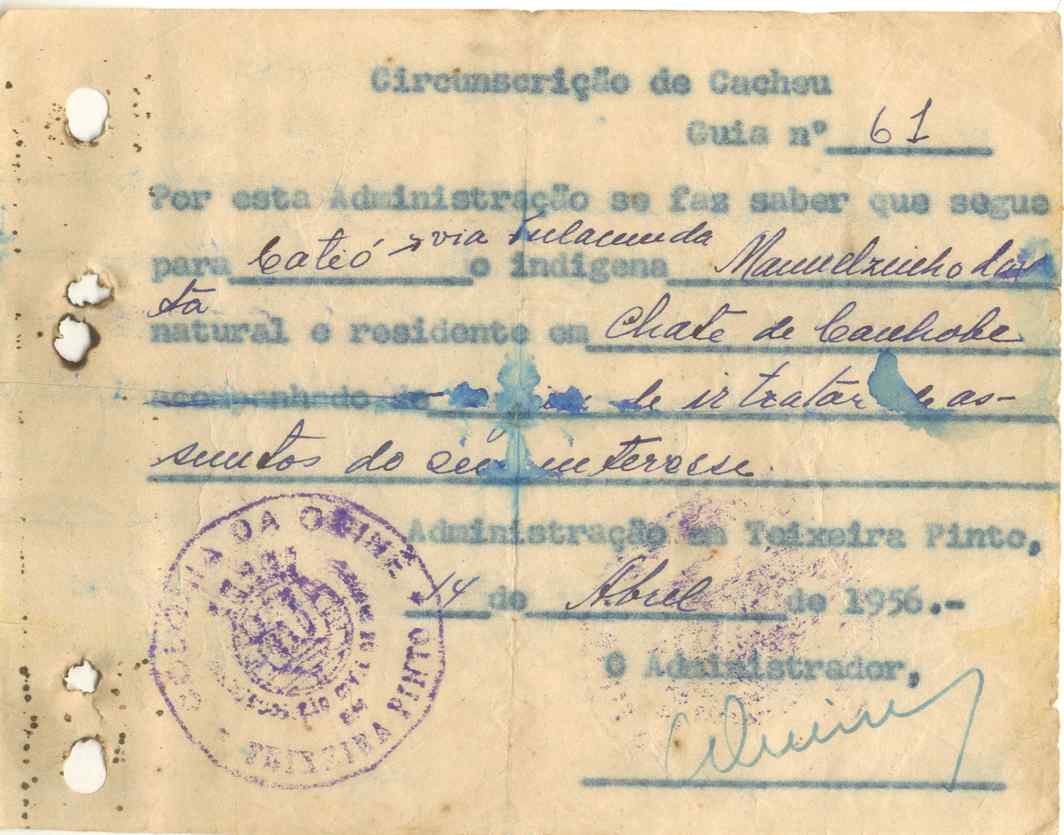 Circunscrição de Cacheu
Guia nº 61
Por esta Administração se faz saber que segue
para Catió via Fulacunda o indígena Manuelzinho da Cos
ta
natural e residente em Chate de Canhobe
acompanhado de de ir tratar de as-
suntos do seu interesse.
Administração em Teixeira Pinto,
14 de Abril de 1956.-
O Administrador,
COLONIA DA GUINÉ
TEIXEIRA PINTO